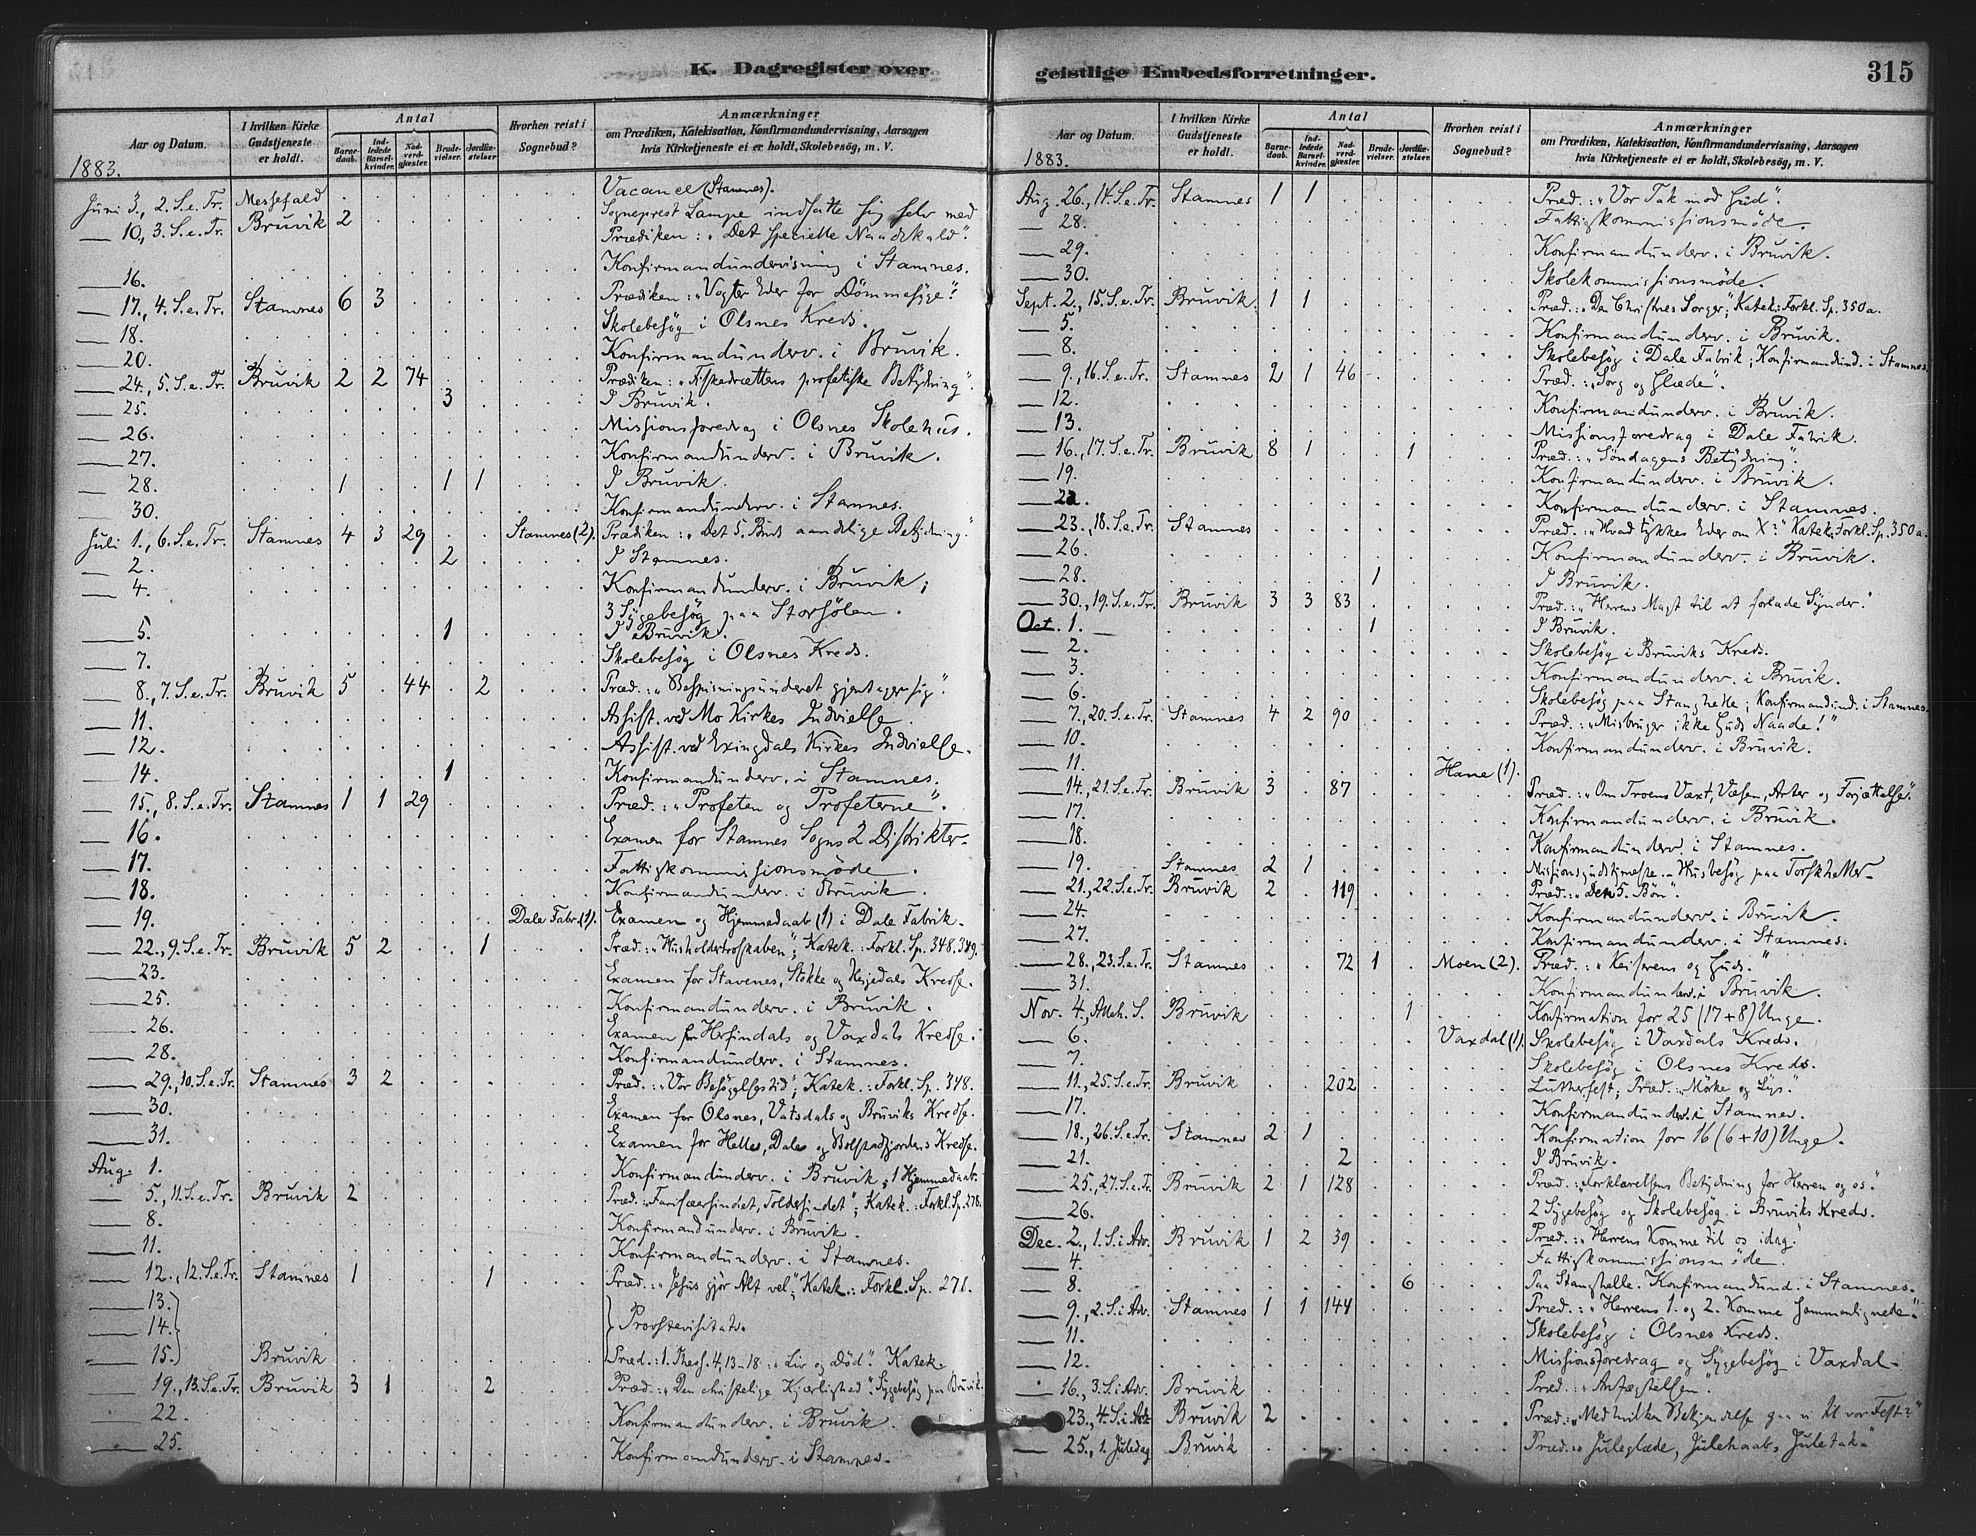 K. Dagregister over
Aar og Datum. I hvilken Kirke Gudstjeneste er holdt. Antal Barnedaab. Indledede Barselkvinder. Nadverdgjæster. Brudevielser. Jordfæstelser Hvorhen reist i Sognebud? Anmærkninger om Prædiken, Katekisation, Konfirmandundervisning, Aarsagen hvis Kirketjeneste ei er holdt, Skolebesøg, m. V.
1883.
Juni 3., 2. S. e. Tr. Messefald Vacance (Stamnes).
— 10., 3. S. e. Tr. Bruvik 2 Sogneprest Lampe indsatte sig selv med
Prædiken: „Det specielle Naadekald“.
— 16. Konfirmandundervisning i Stamnes.
— 17., 4. S. e. Tr. Stamnes 6 3 Prædiken: „Vogter Eder for Dömmesyge“.
— 18. Skolebesøg i Olsnes Kreds.
— 20. Konfirmandunderv. i Bruvik.
— 24., 5. S. e. Tr. Bruvik 2 2 74 Prædiken: „Fiskedrættens profetiske Betydning“.
— 25. 3 I Bruvik.
— 26. Missionsforedrag i Olsnes Skolehus.
— 27. Konfirmandunderv. i Bruvik.
— 28. 1 1 1 I Bruvik.
— 30. Konfirmandunderv. i Stamnes.
Juli 1., 6. S. e. Tr. Stamnes 4 3 29 Stamnes (2). Prædiken: „Det 5. Buds aandelige Betydning“
— 2. 2 I Stamnes.
— 4. Konfirmandunderv. i Bruvik;
3 Sygebesøg paa Storsölen.
— 5. 1 I Bruvik.
— 7. Skolebesøg i Olsnes Kreds.
— 8., 7. S. e. Tr. Bruvik 5 44 2 Præd.: „Bespisningsunderet gjentager sig“.
— 11. Assist. ved Mo Kirkes Indvielse.
— 12. Assist. ved Exingdals Kirkes Indvielse.
— 14. 1 Konfirmandunderv. i Stamnes.
— 15., 8. S. e. Tr. Stamnes 1 1 29 Præd.: „Profeten og Profeterne“.
— 16. Examen for Stamnes Sogns 2 Distrikter.
— 17. Fattigkommissionsmöde.
— 18. Konfirmandunderv. i Bruvik.
— 19. Dale Fabr. (1). Examen og Hjemmedaab (1) i Dale Fabrik.
— 22., 9. S. e. Tr. Bruvik 5 2 1 Præd.: „Husholdertroskaben“; Katek.: Forkl. Sp. 348. 349.
— 23. Examen for Stavenes, Stokke og Hesjedals Kredse.
— 25. Konfirmandunderv. i Bruvik.
— 26. Examen for Herfindals og Vaxdals Kredse.
— 28. Konfirmandunderv. i Stamnes.
— 29., 10. S. e. Tr. Stamnes 3 2 Præd.: „Vor Besøgelsestid“; Katek.: Forkl. Sp. 348.
— 30. Examen for Olsnes, Vatsdals og Bruviks Kredse.
— 31. Examen for Helles, Dale og Bolstadfjordens Kredse.
Aug. 1. Konfirmandunderv. i Bruvik, 1 Hjemmedaab.
— 5., 11. S. e. Tr. Bruvik 2 Præd.: „Farisæersindet, Toldersindet“; Katek.: Forkl. Sp. 278.
— 8. Konfirmandunderv. i Bruvik.
— 11. Konfirmandunderv. i Stamnes.
— 12., 12. S. e. Tr. Stamnes 1 1 Præd.: „Jesus gjør Alt vel“; Katek.: Forkl. Sp. 271.
— 13.
— 14. Provstevisitats.
— 15. Bruvik Præd.: 1. Thess. 4, 13–18: „Liv og Död“. Katek.
— 19., 13. S. e. Tr. Bruvik 3 1 2 Præd.: „Den christelige Kjærlighed“. Sygebesøg paa Bruvik.
— 22. Konfirmandunderv. i Bruvik.
— 25. Konfirmandunderv. i Stamnes.
geistlige Embedsforretninger. 315
Aar og Datum. I hvilken Kirke Gudstjeneste er holdt. Antal Barnedaab. Indledede Barselkvinder. Nadverdgjæster. Brudevielser. Jordfæstelser. Hvorhen reist i Sognebud? Anmærkninger om Prædiken, Katekisation, Konfirmandundervisning, Aarsagen hvis Kirketjeneste ei er holdt, Skolebesøg, m. V.
1883.
Aug. 26., 14. S. e. Tr. Stamnes 1 1 Præd.: „Vor Tak mod Gud“.
— 28. Fattigkommissionsmöde.
— 29. Konfirmandunderv. i Bruvik.
— 30. Skolekommissionsmöde.
Sept. 2., 15. S. e. Tr. Bruvik 1 1 Præd.: „De Christnes Sorger“; Katek: Forkl. Sp. 350 a.
— 5. Konfirmandunderv. i Bruvik.
— 8. Skolebesøg i Dale Fabrik; Konfirmandund. i Stamnes.
— 9., 16. S. e. Tr. Stamnes 2 1 46 Præd.: „Sorg og Glæde“.
— 12. Konfirmandunderv. i Bruvik.
— 13. Missionsforedrag i Dale Fabrik.
— 16., 17. S. e. Tr. Bruvik 8 1 1 Præd.: „Söndagens Betydning“.
— 19. Konfirmandunderv. i Bruvik.
— 22. Konfirmandunderv. i Stamnes.
— 23., 18. S. e. Tr. Stamnes Præd.: „Hvad tykkes Eder om X?“ Katek. Forkl. Sp. 350 a.
— 26. Konfirmandunderv. i Bruvik.
— 28. 1 I Bruvik.
— 30., 19. S. e. Tr. Bruvik 3 3 83 Præd.: „Herrens Magt til at forlade Synder.“
Oct. 1. 1 I Bruvik.
— 2. Skolebesøg i Bruviks Kreds.
— 3. Konfirmandunderv. i Bruvik.
— 6. Skolebesøg paa Stanghelle; Konfirmandund. i Stamnes.
— 7., 20. S. e. Tr. Stamnes 4 2 90 Præd.: „Misbruger ikke Guds Naade!“
— 10. Konfirmandunderv. i Bruvik.
— 11. Hane (1).
— 14., 21. S. e. Tr. Bruvik 3 87 Præd.: „Om Troens Vaxt, Væsen, Arter og Forjættelse“.
— 17. Konfirmandunderv. i Bruvik.
— 18. Konfirmandunderv. i Stamnes.
— 19. Stamnes 2 1 Missionsgudstjeneste. Husbesøg paa
— 21., 22. S. e. Tr. Bruvik 2 119 Præd.: „Den 5. Bön“
— 24. Konfirmandunderv. i Bruvik.
— 27. Konfirmandunderv. i Stamnes.
— 28., 23. S. e. Tr. Stamnes 72 1 Moen (2). Præd.: „Keiserens og Guds.“
— 31. Konfirmandunderv. i Bruvik.
Nov. 4., Alleh. S. Bruvik 1 Konfirmation for 25 (17 + 8) Unge.
— 6. Vaxdal (1). Skolebesøg i Vaxdals Kreds.
— 7. Skolebesøg i Olsnes Kreds.
— 11., 25. S. e. Tr. Bruvik 202 Lutherfest; Præd.: „Mörke og Lys“.
— 17. Konfirmandunderv. i Stamnes.
— 18., 26. S. e. Tr. Stamnes 2 1 Konfirmation for 16 (6 + 10) Unge.
— 21. 2 I Bruvik.
— 25., 27. S. e. Tr. Bruvik 2 1 128 Præd.: „Forklarelsens Betydning for Herren og os“.
— 26. 2 Sygebesøg og Skolebesøg i Bruviks Kreds.
Dec. 2., 1. S. i Adv. Bruvik 1 2 39 Præd.: „Herrens Komme til os idag“.
— 4. Fattigkommissionsmöde.
— 8. 6 Paa Stanghelle. Konfirmandund. i Stamnes.
— 9., 2. S. i Adv. Stamnes 1 1 144 Præd.: „Herrens 1. og 2. Komme sammenlignede“.
— 11. Skolebesøg i Olsnes Kreds.
— 12. Missionsforedrag og Sygebesøg i Vaxdal.
16., 3. S. i Adv. Bruvik Præd.: „Anfægtelsen“.
— 23., 4. S. i Adv. Bruvik 2 Præd.: „Med hvilken Bekjendelse gaa vi til vor Fest?“
— 25., 1. Juledag Bruvik Præd.: „Juleglæde, Julehaab, Juletak“